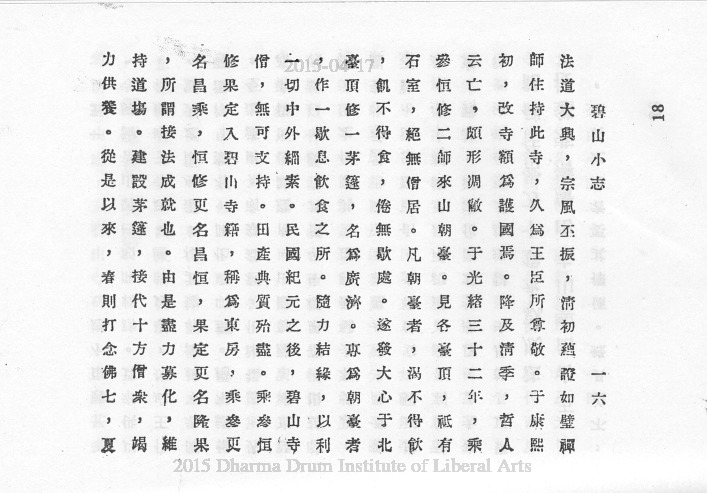 18
碧山小志　一六
法道大興，宗風丕振，清初蘊證如璧禪
師住持此寺，久為王臣所尊敬。于康熙
初，改寺額為護國焉。降及清季，哲人
云亡，頗形凋敝。于光緒三十二年，乘
參恒修二師來山朝臺。見各臺頂，祇有
石室，絕無僧居。凡朝臺者，渴不得飲
，飢不得食，倦無歇處。遂發大心于北
臺頂修一茅篷，名為廣濟。專為朝臺者
，作一歇息飲食之所。隨力結緣，以利
一切中外緇素。民國紀元之後，碧山寺
僧，無可支持。田產典質殆盡。乘參恒
修果定入碧山寺籍，稱為東房，乘參更
名昌乘，恒修更名昌恒，果定更名隆果
，所謂接法成就也。由是盡力募化，維
持道場。建設茅篷，接代十方僧衆，竭
力供養。從是以來，春則打念佛七，夏
2015-04-17
2015 Dharma Drum Institute of Liberal Arts